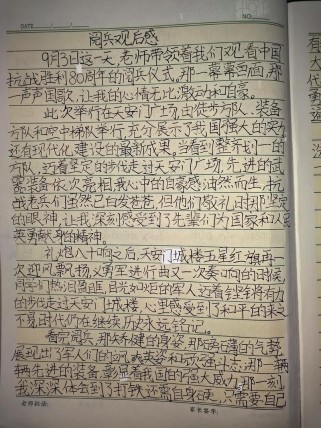 DATE
NO.
阅兵观后感
9月3日这一天,老师带领着我们观看中国
抗战胜利80周年的阅兵仪式。那一幕幕画面,那
一声声国歌,让我的心情无比激动和自豪。
此次举行在天安门广场,由徒步方队、装备
方队和空中梯队举行,充分展示了我国强大的实力
还有现代化建设的最新成果,当看到整齐划一的
方队,迈着坚定的步伐走过天安门广场,先进的武
器装备依次亮相,我心中的自豪感油然而生,抗
战老兵们虽然已白发苍苍,但他们敬礼时那坚定
的眼神,让我深刻感受到了先辈们为国家和人民
英勇献身的精神。
礼炮八十响之后,天安门城楼五星红旗再一
次迎风飘扬,义勇军进行曲又一次奏响的时候,
同学们热泪盈眶,目光如炬的军人迈着铿锵有力
的步伐走过天安门城楼,心里感受到了和平的来之
不易,时代仍在继续,历史不应忘记。
看完阅兵,那矫健的身姿,那
展现出了军人们的
辆先进的装备,彰显着我国的强大威力,那一刻
我深深体会到了打铁还需自身硬,只需要自己
老师批语:
家长签字: